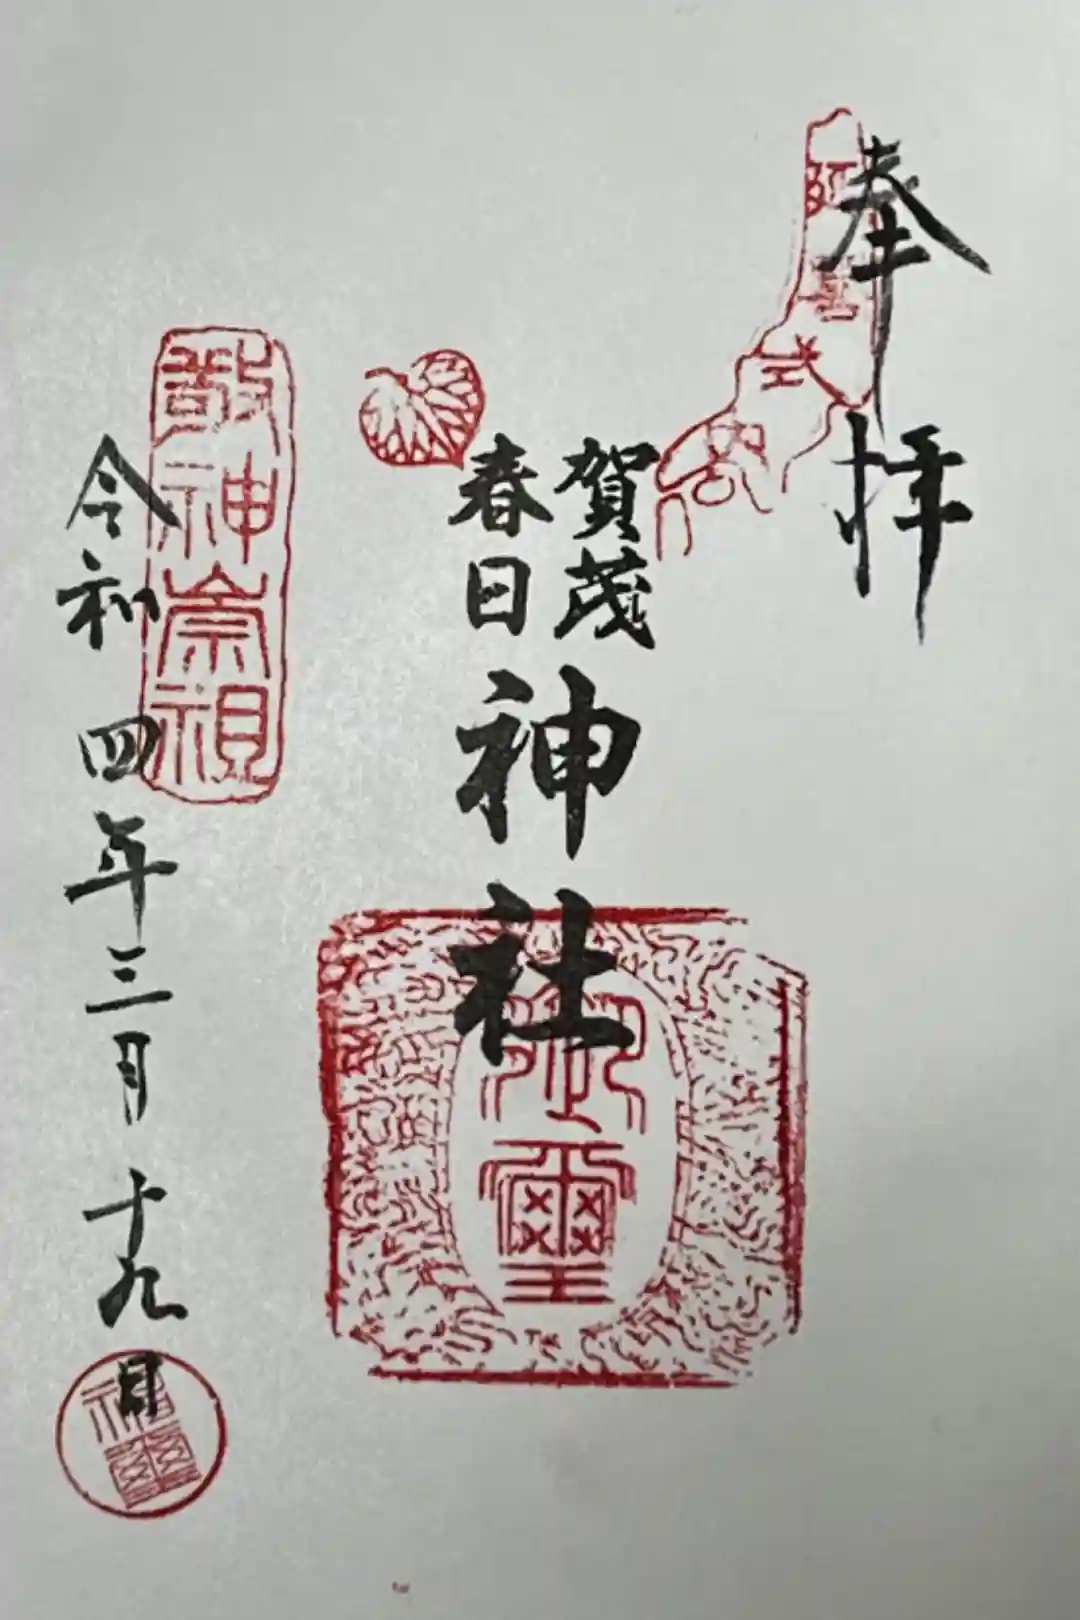 奉拝
賀茂
春日
神社
敬神崇祖
令和四年三月十九日